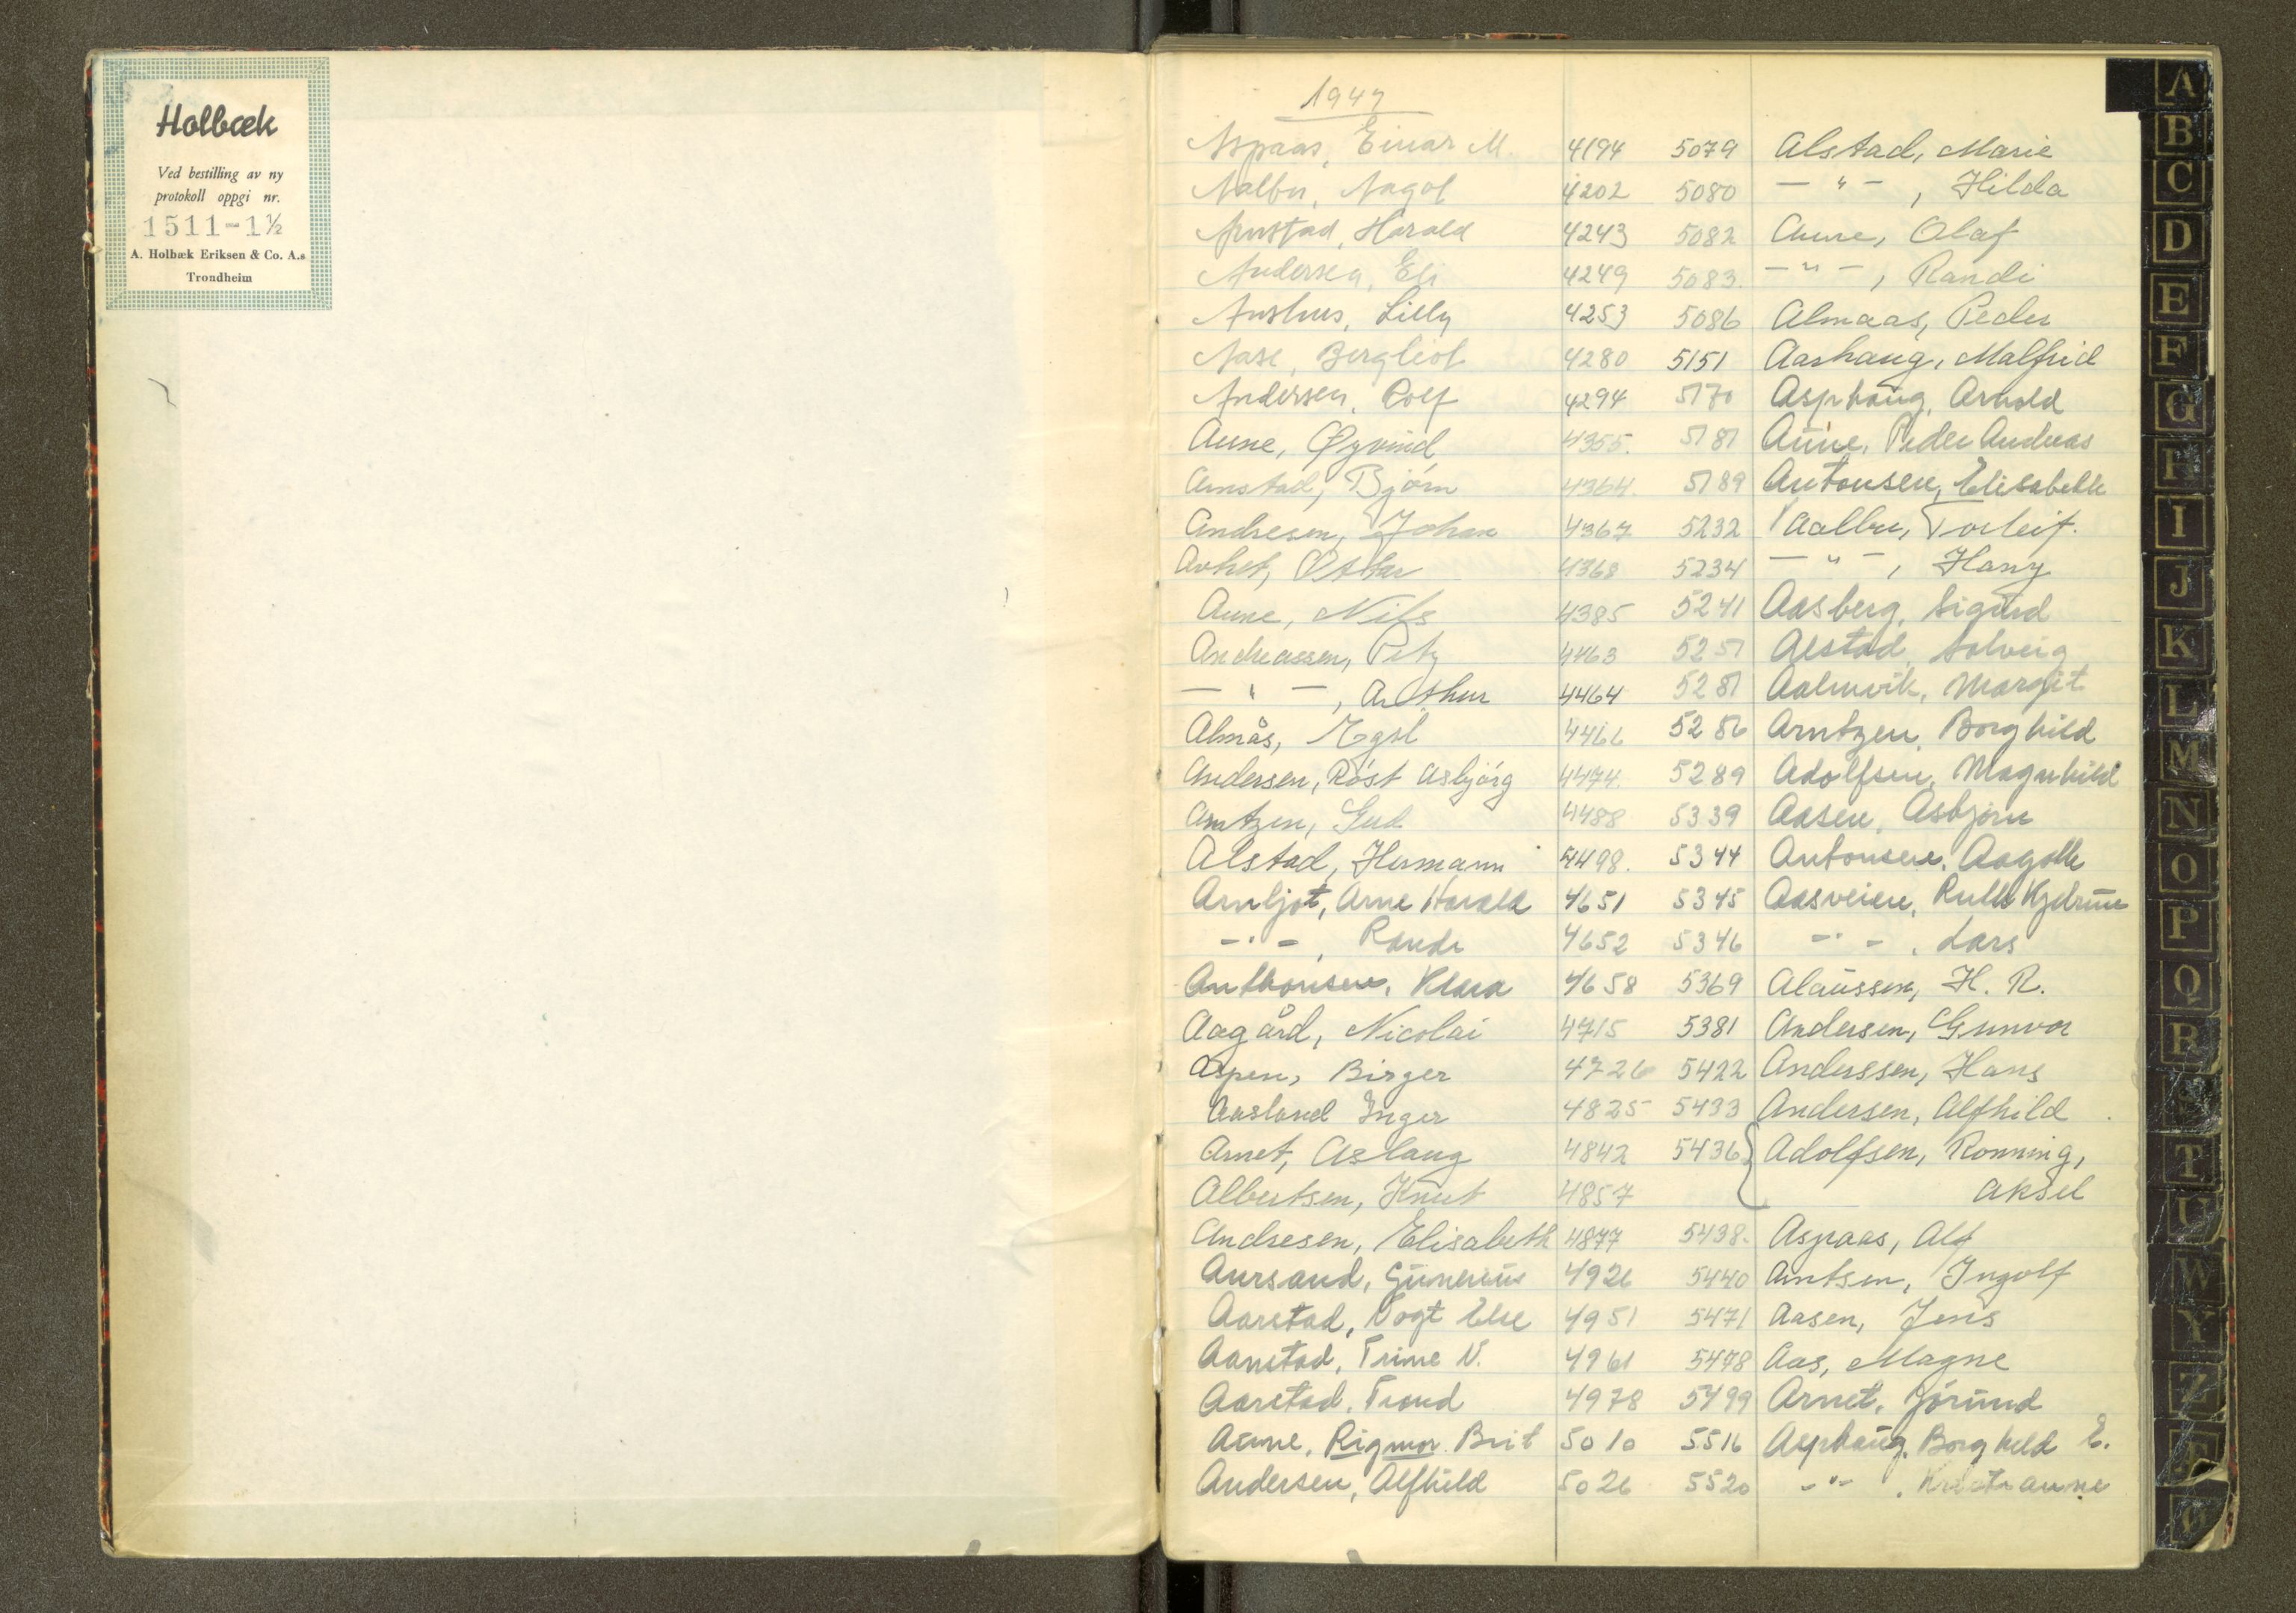 Holbæk
Ved bestilling av ny
protokoll oppgi nr.
1511-1½
A. Holbæk Eriksen & Co. A.s
Trondheim
1947
Aspaas, Einar M. 4194 5079 Alstad, Marie
Aalbu, Aagot 4202 5080 — " — , Hilda
Arnstad, Harald 4243 5082 Aune, Olaf
Andersen, Eli 4249 5083. — " — , Randi
Aushus, Lilly 4253 5086 Almaas, Peder
Aase, Bergliot 4280 5151 Aashaug, Malfrid
Andersen, Rolf 4294 5170 Asphaug, Arnold
Aune, Øyvind 4355. 5181 Aune, Peder Andreas
Arnstad, Bjørn 4364. 5189 Antonsen, Elisabeth
Andresen, Johan 4367 5232 Aalbu, Torleif.
4368 5234 — " — , Harry
Aune, Nils 4385 5241 Aasberg, Sigurd
Andreassen, 4463 5251 Alstad, Solveig
— " — , Arthur 4464 5281 Aalmvik, Margit
Almås, 4466 5286 Arntzen, Borghild
Andersen, Röst Asbjörg 4474. 5289 Adolfsen, Magnhild
Arntzen, Gud 4488 5339 Aasen, Asbjørn
Alstad, Hermann 4498. 5344 Antonsen, Aagoth
Arnljot, Arne Harald 4651 5345 Aasveien, Ruth
— " — , Randi 4652 5346 — " — , Lars
Anthonsen, Klara 4658 5369 Alaussen, H. R.
Aagård, Nicolai 4715 5381 Andersen, Gunvor
Aspen, Birger 4726 5422 Anderssen, Hans
Aasland Inger 4825 5433 Andersen, Alfhild
Arnet, Aslaug 4842 5436 Adolfsen, Ronning,
Albertsen, Knut 4857 Aksel
Andresen, Elisabeth 4877 5438. Aspaas, Alf
Aursand, Gunerius 4926 5440 Arntsen, Ingolf
Aarstad, Vogt Else 4951 5471 Aasen, Jens
Aanstad, Trine N. 4961 5478 Aas, Magne
Aarstad, Trond 4978 5499 Arnet, Jörund
Aune, Rigmor Brit 5010 5516 Asphaug, Borghild E.
Andersen, Alfhild 5026 5520 — " — , Kristianne
A
B
C
D
E
F
G
H
I
J
K
L
M
N
O
P
Q
R
T
U
W
Y
Z
Æ
Ø